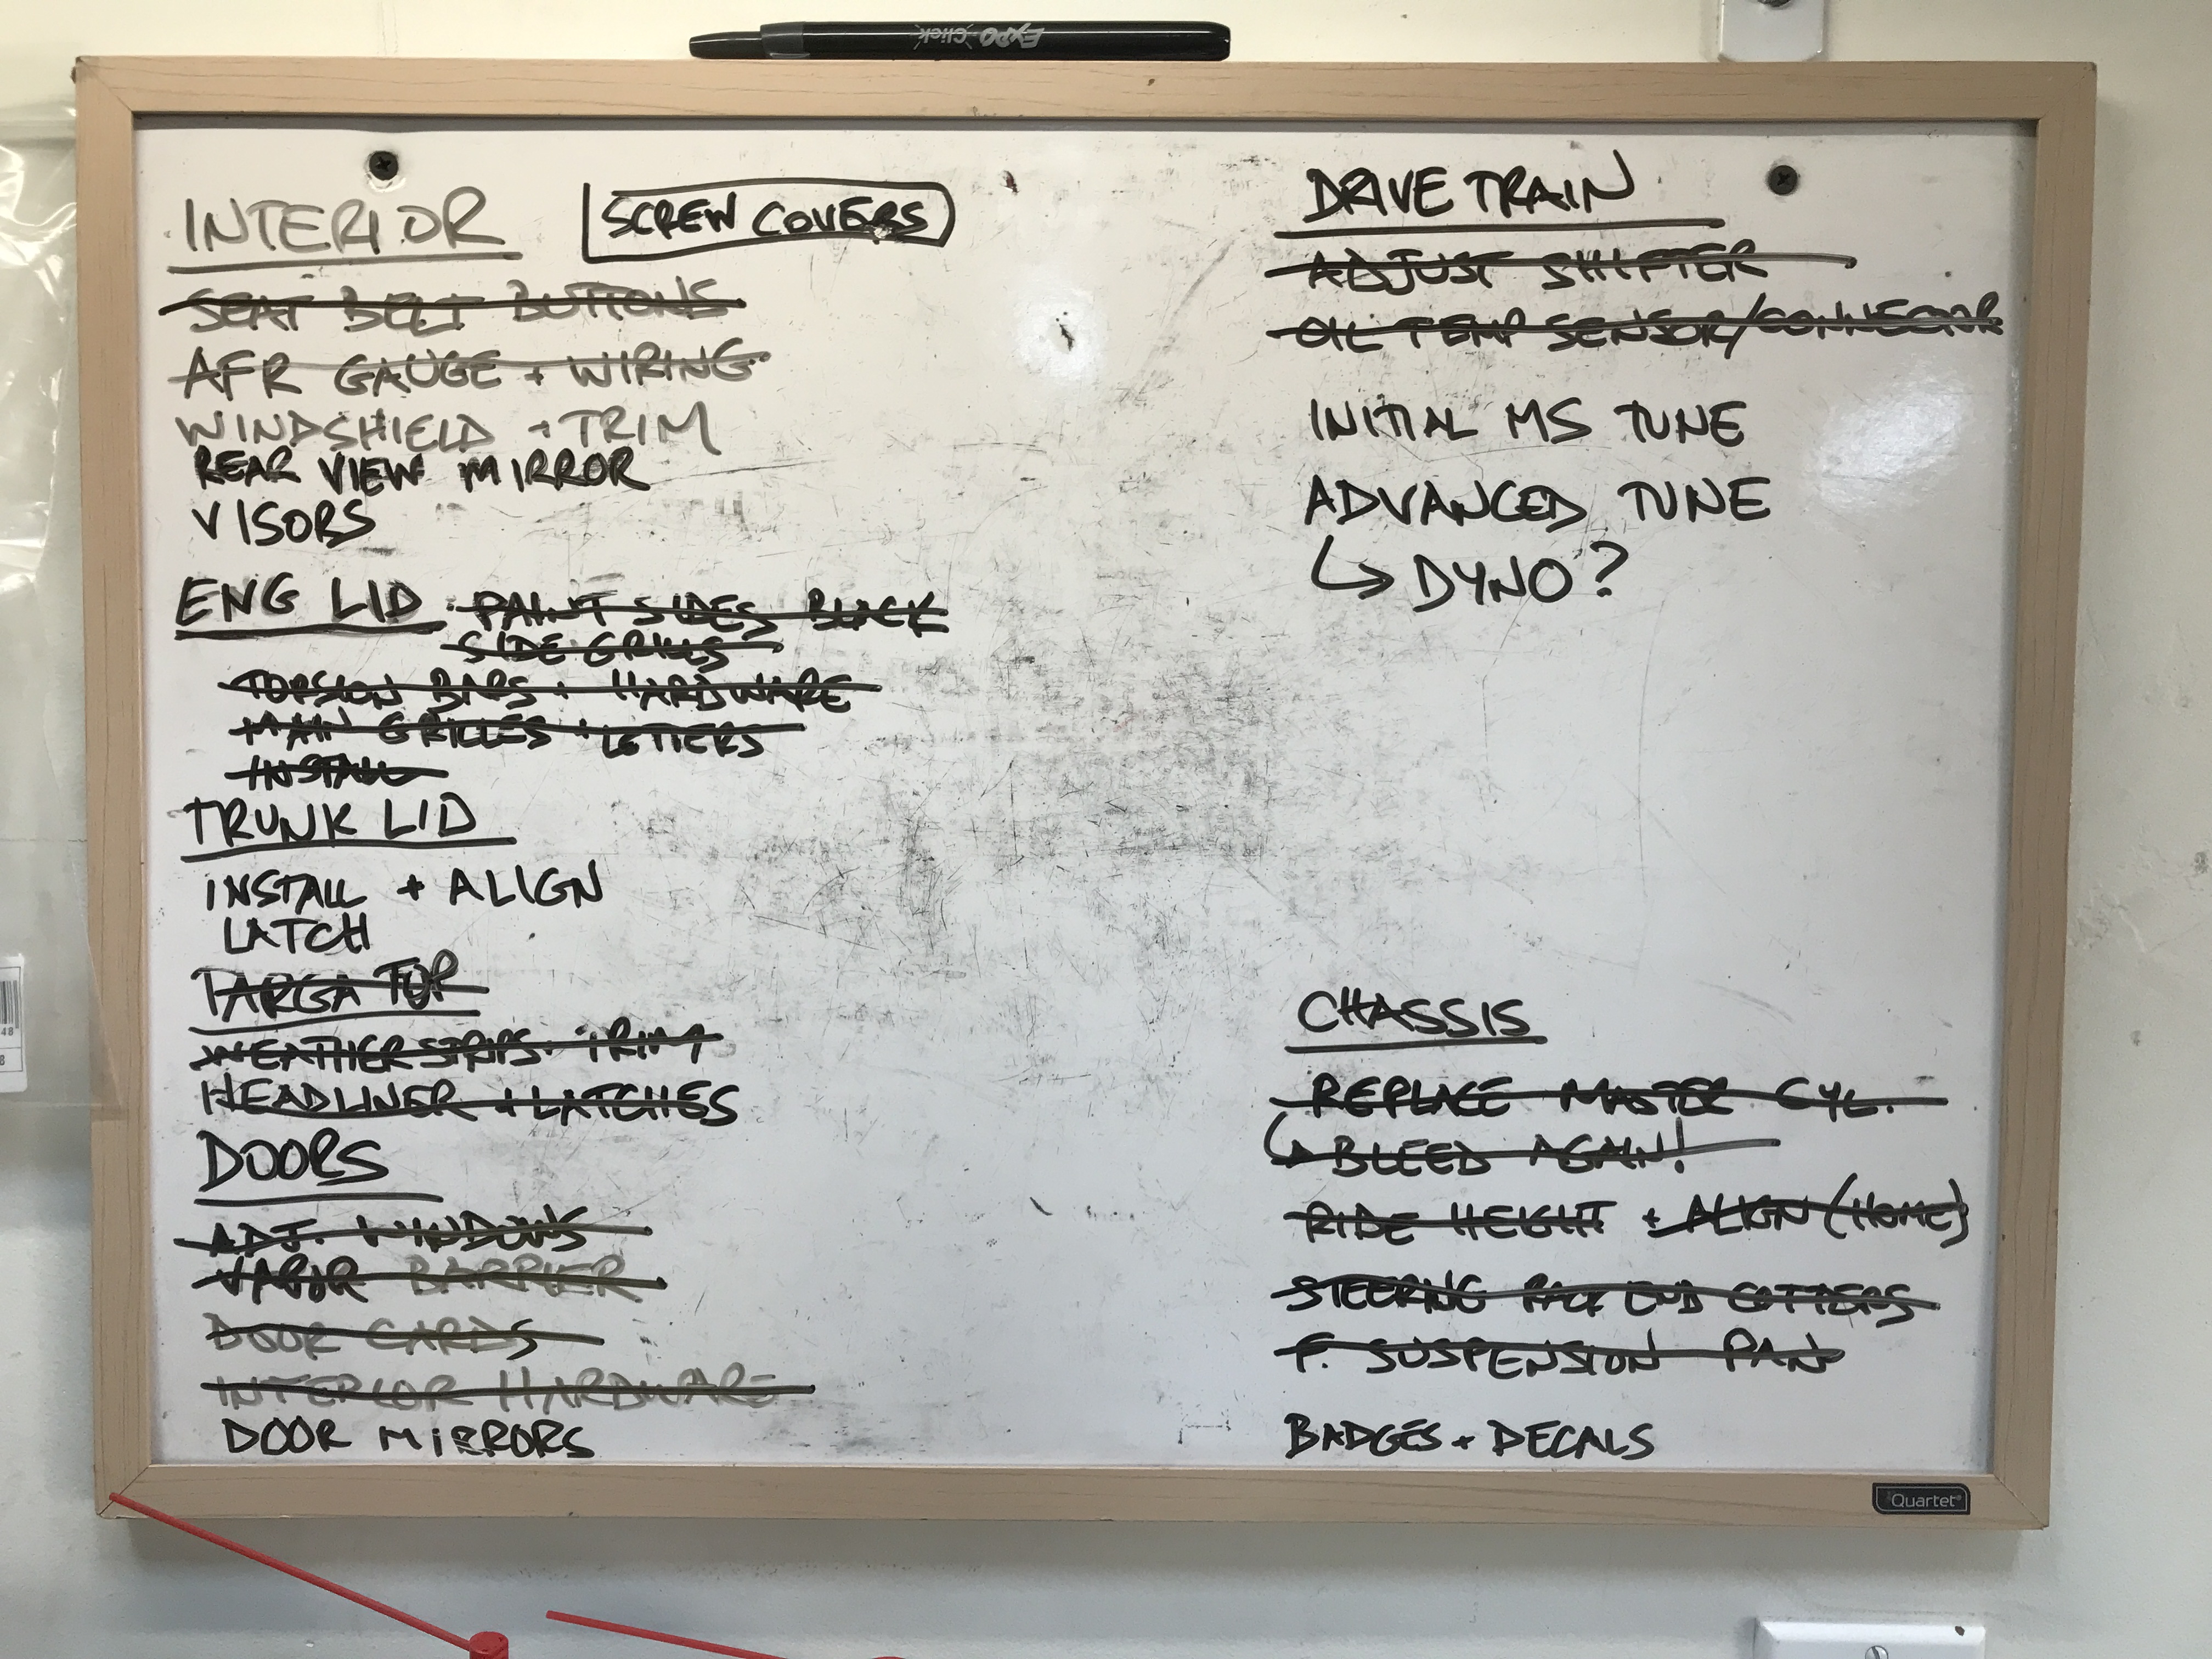 EXPO Click
INTERIOR
SCREW COVERS
SEAT BELT BUTTONS
AFR GAUGE + WIRING
WINDSHIELD + TRIM
REAR VIEW MIRROR
VISORS
ENG LID · PAINT SIDES BLACK
SIDE GRILLS
TORSION BARS + HARDWARE
MAIN GRILLES + LETTERS
INSTALL
TRUNK LID
INSTALL + ALIGN
LATCH
TARGA TOP
WEATHERSTRIPS + TRIM
HEADLINER + LATCHES
DOORS
ADJ. WINDOWS
VAPOR BARRIER
DOOR CARDS
INTERIOR HARDWARE
DOOR MIRRORS
DRIVE TRAIN
ADJUST SHIFTER
OIL TEMP SENSOR/CONNECTOR
INITIAL MS TUNE
ADVANCED TUNE
↳ DYNO?
CHASSIS
REPLACE MASTER CYL.
↳ BLEED AGAIN!
RIDE HEIGHT + ALIGN (HOME)
STEERING RACK END COTTERS
F. SUSPENSION PAN
BADGES + DECALS
Quartet
48
8